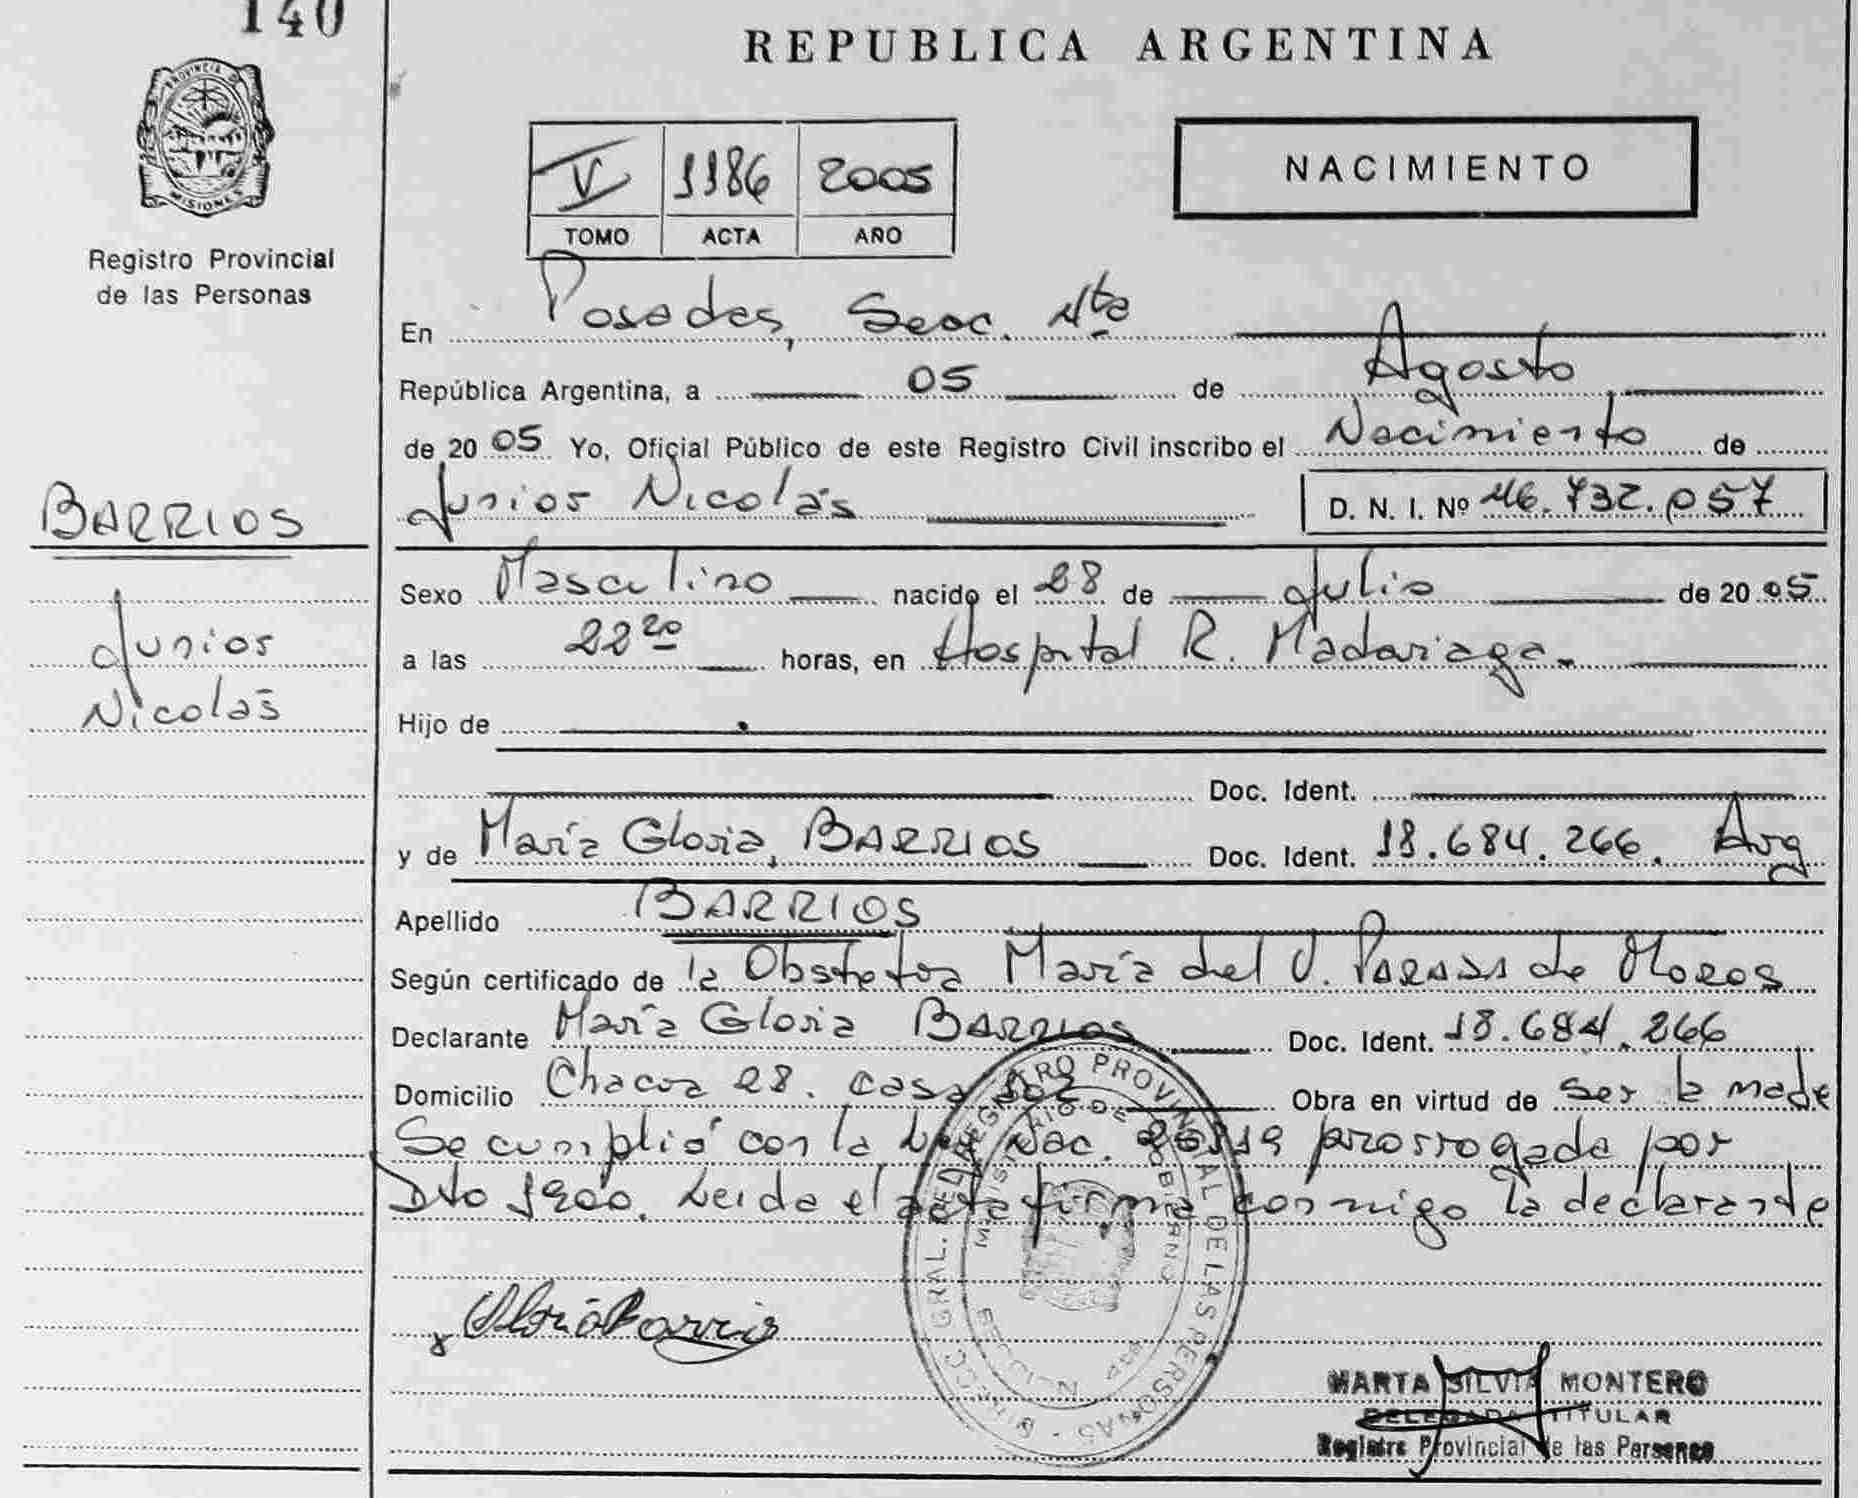 140
REPUBLICA ARGENTINA
PROVINCIA DE
MISIONES
Registro Provincial
de las Personas
V 1186 2005
TOMO ACTA AÑO
NACIMIENTO
En Posadas, Secc. 4ta
República Argentina, a 05 de Agosto
de 20 05 Yo, Oficial Público de este Registro Civil inscribo el Nacimiento de
Junior Nicolás D. N. I. Nº 46.732.057
BARRIOS
Junior
Nicolás
Sexo Masculino nacido el 28 de Julio de 20 05
a las 22 20 horas, en Hospital R. Madariaga.
Hijo de
Doc. Ident.
y de María Gloria, BARRIOS Doc. Ident. 18.684.266. Arg
Apellido BARRIOS
Según certificado de la Obstetra María del V. de Moros
Declarante María Gloria BARRIOS Doc. Ident. 18.684.266
Domicilio Chacra 28. casa Obra en virtud de ser la madre
Se cumplió con la Ley Nac. prorrogada por
Dto 1900. Leida el acta firma conmigo la declarante
Gloria Barrios
DIRECC. GRAL. DEL REGISTRO PROVINCIAL DE LAS PERSONAS
MINISTERIO DE GOBIERNO
MARTA SILVIA MONTERO
DELEGADA TITULAR
Registro Provincial de las Personas